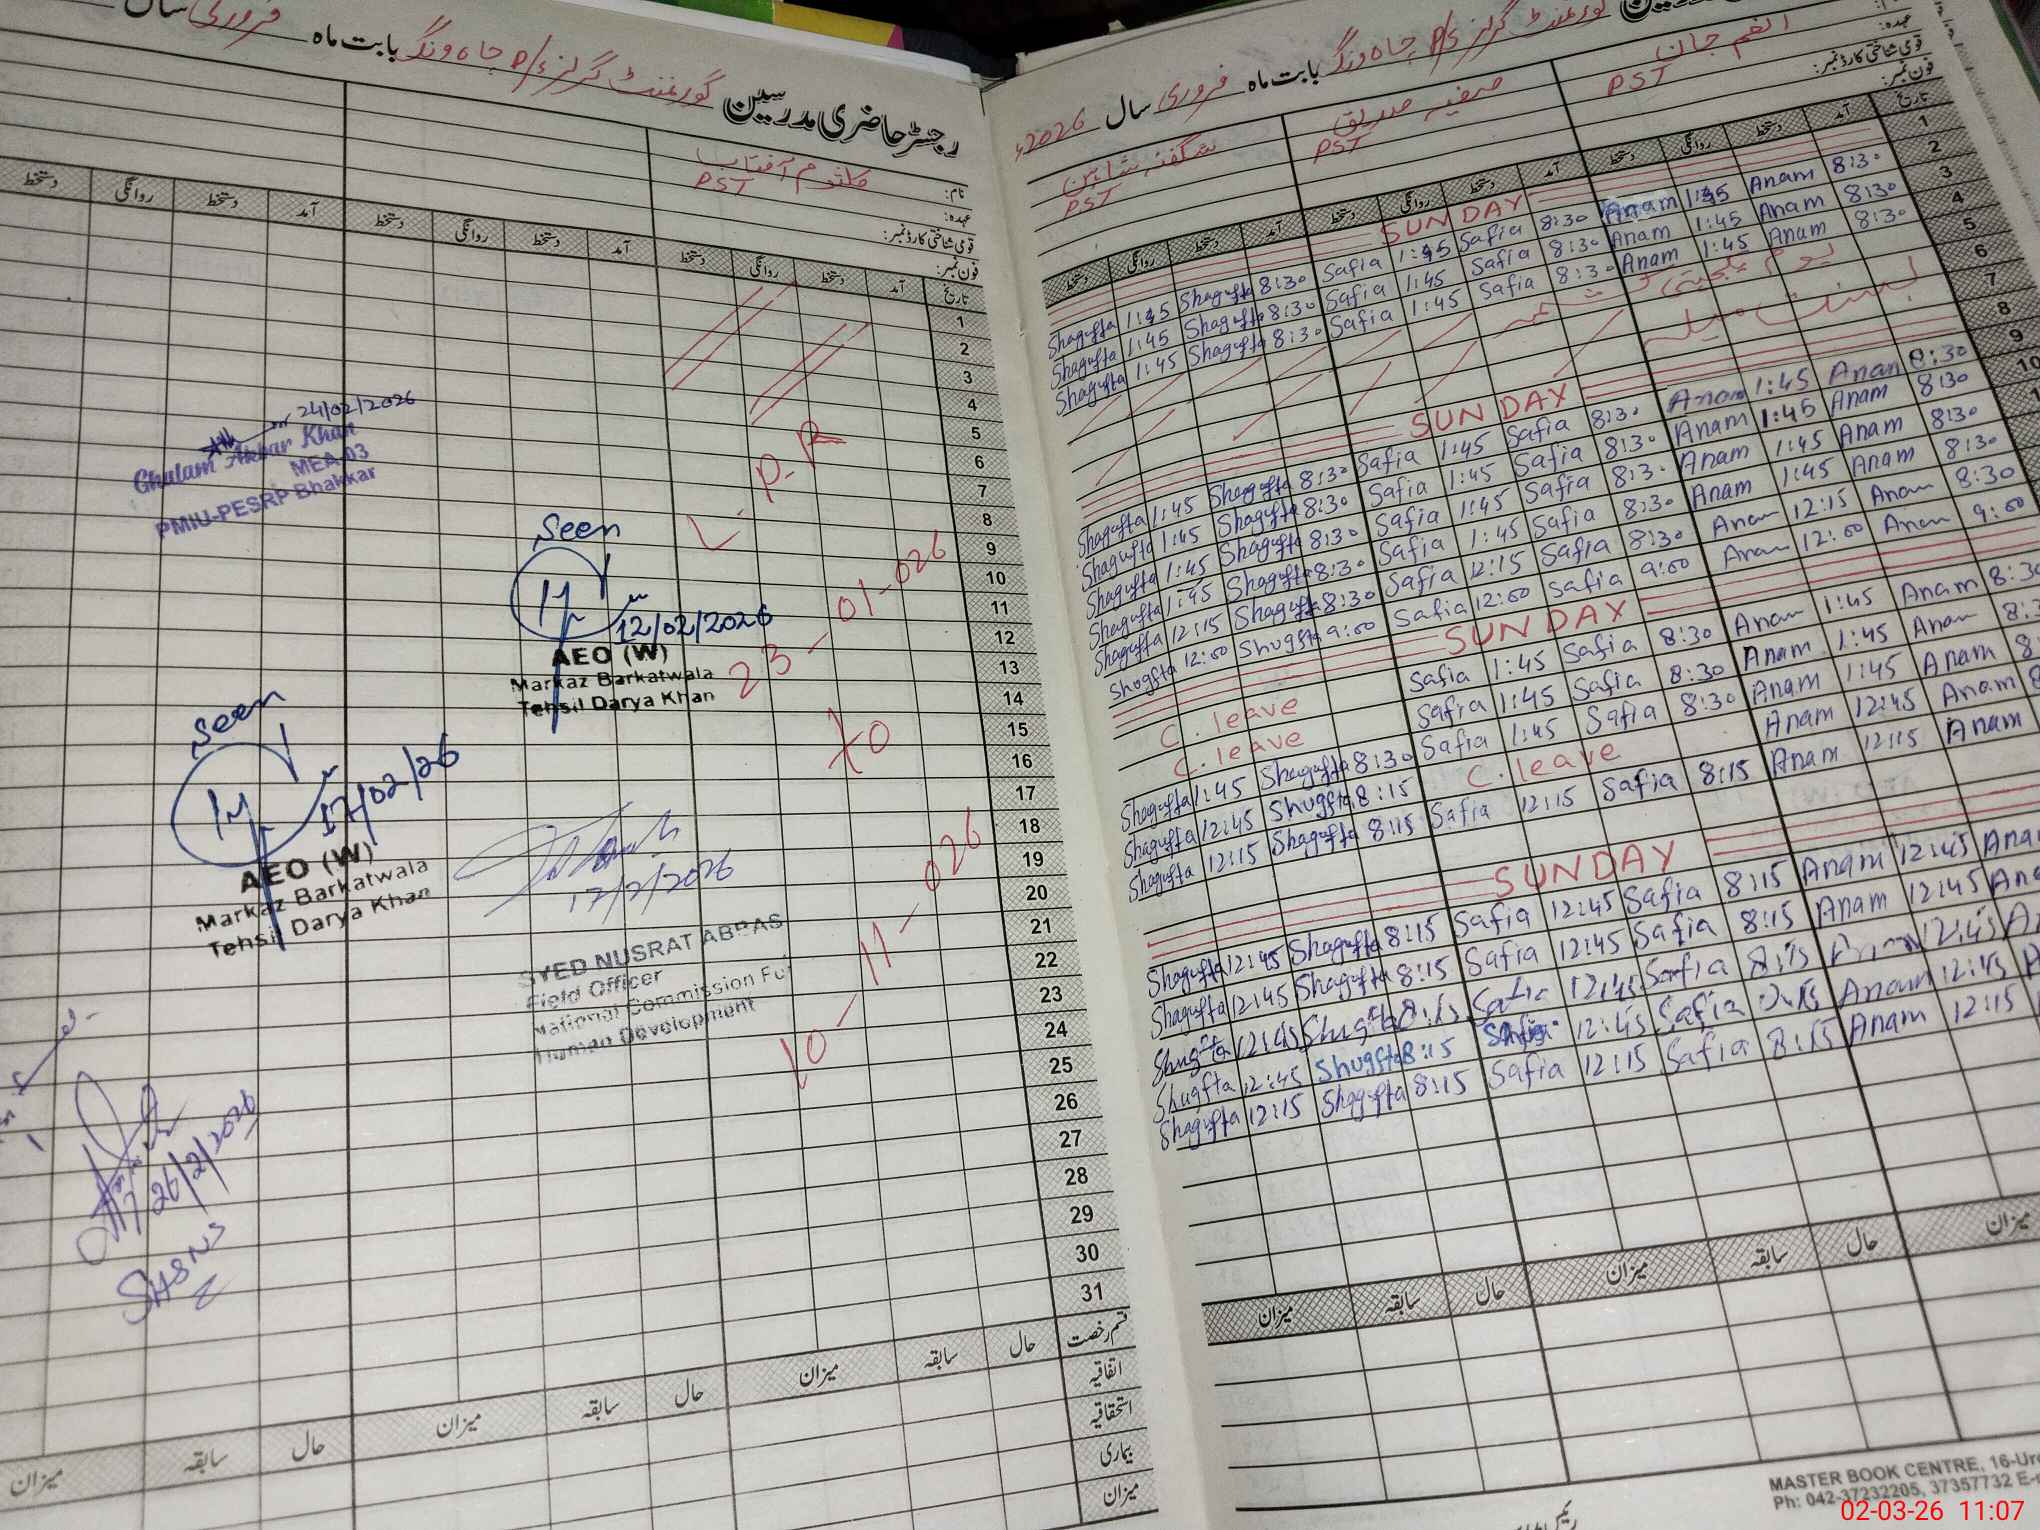 رجسٹر حاضری مدرسین گورنمنٹ گرلز P/S چاہ ونگ بابت ماہ فروری سال
نام: کلثوم آفتاب
عہدہ: PST
قومی شناختی کارڈ نمبر:
فون نمبر:
تاریخ آمد دستخط روانگی دستخط آمد دستخط روانگی دستخط آمد دستخط روانگی دستخط
1
2
3
4
5
6
7
8
9
10
11
12
13
14
15
16
17
18
19
20
21
22
23
24
25
26
27
28
29
30
31
L.P.R
23-01-026
to
10-11-026
24/02/2026
Ghulam Akbar Khan
MEA-03
PMIU-PESRP Bhakkar
Seen
12/02/2026
AEO (W)
Markaz Barkatwala
Tehsil Darya Khan
Seen
17/02/26
AEO (W)
Markaz Barkatwala
Tehsil Darya Khan
17/2/2026
SYED NUSRAT ABBAS
Field Officer
National Commission For
Human Development
26/2/2026
قسم رخصت حال سابقہ میزان حال سابقہ میزان حال سابقہ میزان
اتفاقیہ
استحقاقیہ
بیماری
میزان
گورنمنٹ گرلز P/S چاہ ونگ بابت ماہ فروری سال 2026ء
عہدہ:
قومی شناختی کارڈ نمبر:
فون نمبر:
انعم جان
PST
صفیہ صدیق
PST
شگفتہ شاہین
PST
تاریخ آمد دستخط روانگی دستخط آمد دستخط روانگی دستخط آمد دستخط روانگی دستخط
1 SUNDAY
2 8:30 Anam 1:45 Anam 8:30 Safia 1:45 Safia 8:30 Shagufta 1:45 Shagufta
3 8:30 Anam 1:45 Anam 8:30 Safia 1:45 Safia 8:30 Shagufta 1:45 Shagufta
4 8:30 Anam 1:45 Anam 8:30 Safia 1:45 Safia 8:30 Shagufta 1:45 Shagufta
5 یوم یکجہتی کشمیر
6 بسنت میلہ
7
8 SUNDAY
9 8:30 Anam 1:45 Anam 8:30 Safia 1:45 Safia 8:30 Shagufta 1:45 Shagufta
10 8:30 Anam 1:45 Anam 8:30 Safia 1:45 Safia 8:30 Shagufta 1:45 Shagufta
8:30 Anam 1:45 Anam 8:30 Safia 1:45 Safia 8:30 Shagufta 1:45 Shagufta
8:30 Anam 1:45 Anam 8:30 Safia 1:45 Safia 8:30 Shagufta 1:45 Shagufta
8:30 Anam 12:15 Anam 8:30 Safia 12:15 Safia 8:30 Shagufta 12:15 Shagufta
9:00 Anam 12:00 Anam 9:00 Safia 12:00 Safia 9:00 Shugfta 12:00 Shugfta
SUNDAY
8:30 Anam 1:45 Anam 8:30 Safia 1:45 Safia C. leave
Anam 1:45 Anam 8:30 Safia 1:45 Safia C. leave
Anam 1:45 Anam 8:30 Safia 1:45 Safia 8:30 Shagufta 1:45 Shagufta
Anam 12:45 Anam C. leave 8:15 Shugfta 12:45 Shagufta
Anam 12:15 Anam 8:15 Safia 12:15 Safia 8:15 Shagufta 12:15 Shagufta
SUNDAY
12:45 Anam 8:15 Safia 12:45 Safia 8:15 Shagufta 12:45 Shagufta
12:45 Anam 8:15 Safia 12:45 Safia 8:15 Shagufta 12:45 Shagufta
12:45 8:15 Safia 12:45 Safia 8:15 Shugfta 12:45 Shugfta
12:45 Anam Safia 12:45 Safia 8:15 Shugfta 12:45 Shugfta
12:15 Anam 8:15 Safia 12:15 Safia 8:15 Shagufta 12:15 Shagufta
میزان حال سابقہ میزان حال سابقہ میزان
MASTER BOOK CENTRE, 16-Urd
Ph: 042-37232205, 37357732 E-
02-03-26 11:07